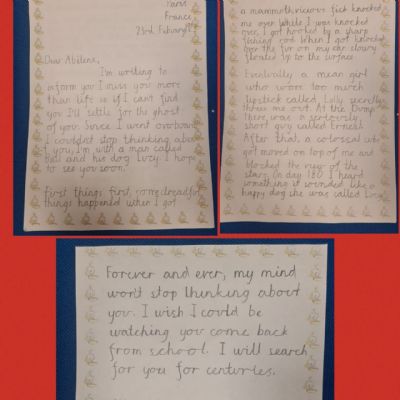 Paris
France
23rd Febuary
Dear Abilene,
I'm writing to
inform you I miss you more
than life so if I can't find
you I'll settle for the ghost
of you. Since I went overboard
I couldn't stop thinking about
you, I'm with a man called
Bull and his dog Lucy. I hope
to see you soon.
first things first, some dreadful
things happened when I got
a mammoth vicious fish knocked
me over. While I was knocked
over, I got hooked by a sharp
fishing rod. When I got knocked
over the fur on my ear slowly
floated up to the surface
Eventually a mean girl
who wore too much
lipstick called Lolly secretly
threw me out. At the Dump
there was a seriously
short guy called Ernest.
After that, a colossal
got moved on top of me and
blocked the view of the
stars. On day 180 I heard
something it sounded like a
happy dog she was called
Forever and ever, my mind
won't stop thinking about
you. I wish I could be
watching you come back
from school. I will search
for you for centuries.